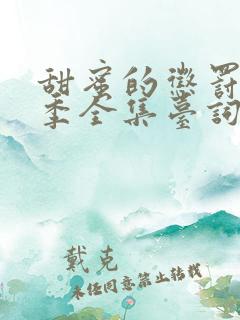 甜蜜的懲罰
季全集臺詞
戴克
未經同意禁止轉載